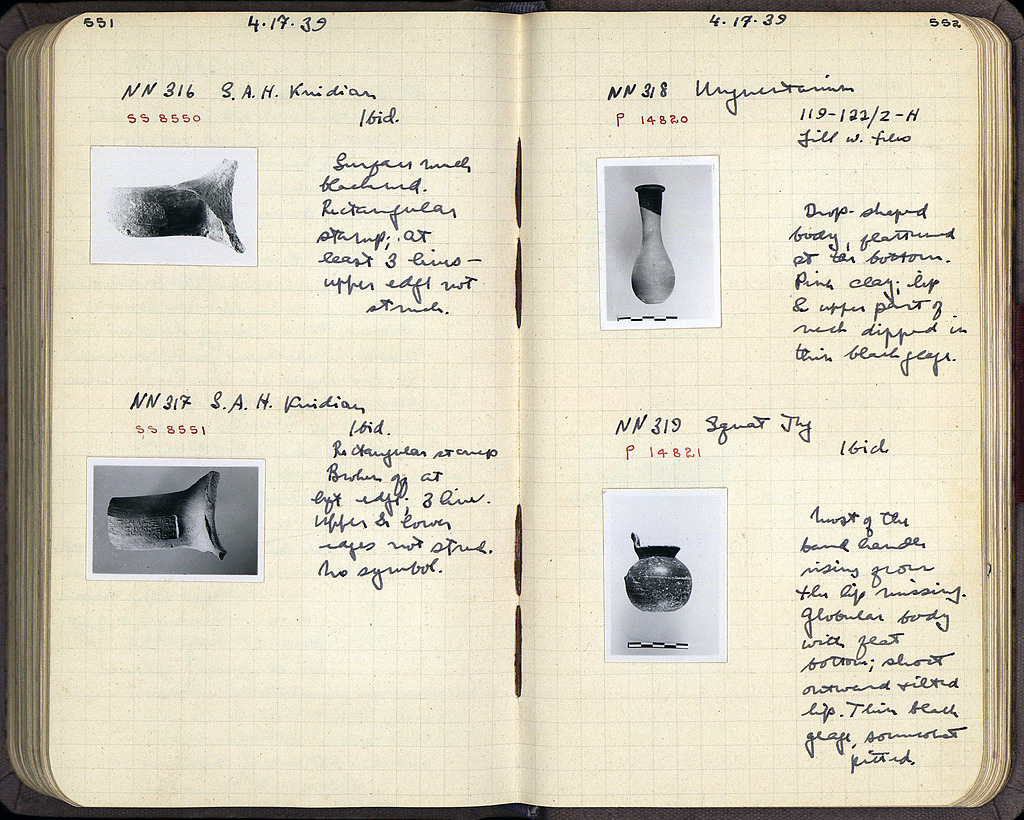 551
4.17.39
NN 316 S.A.H. Knidian
SS 8550
Ibid.
Surface much
blackened.
Rectangular
stamp; at
least 3 lines —
upper edge not
struck.
NN 317 S.A.H. Knidian
SS 8551
Ibid.
Rectangular stamp
Broken off at
left edge. 3 lines.
Upper & lower
edges not struck.
No symbol.
4.17.39
552
NN 318 Unguentarium
P 14820
119-122/2-H
Fill w. tiles
Drop-shaped
body, flattened
at the bottom.
Pink clay; lip
& upper part of
neck dipped in
thin black glaze.
NN 319 Squat Jug
P 14821
Ibid
Most of the
band handle
rising from
the lip missing.
Globular body
with flat
bottom; short
outward tilted
lip. Thin black
glaze, somewhat
pitted.